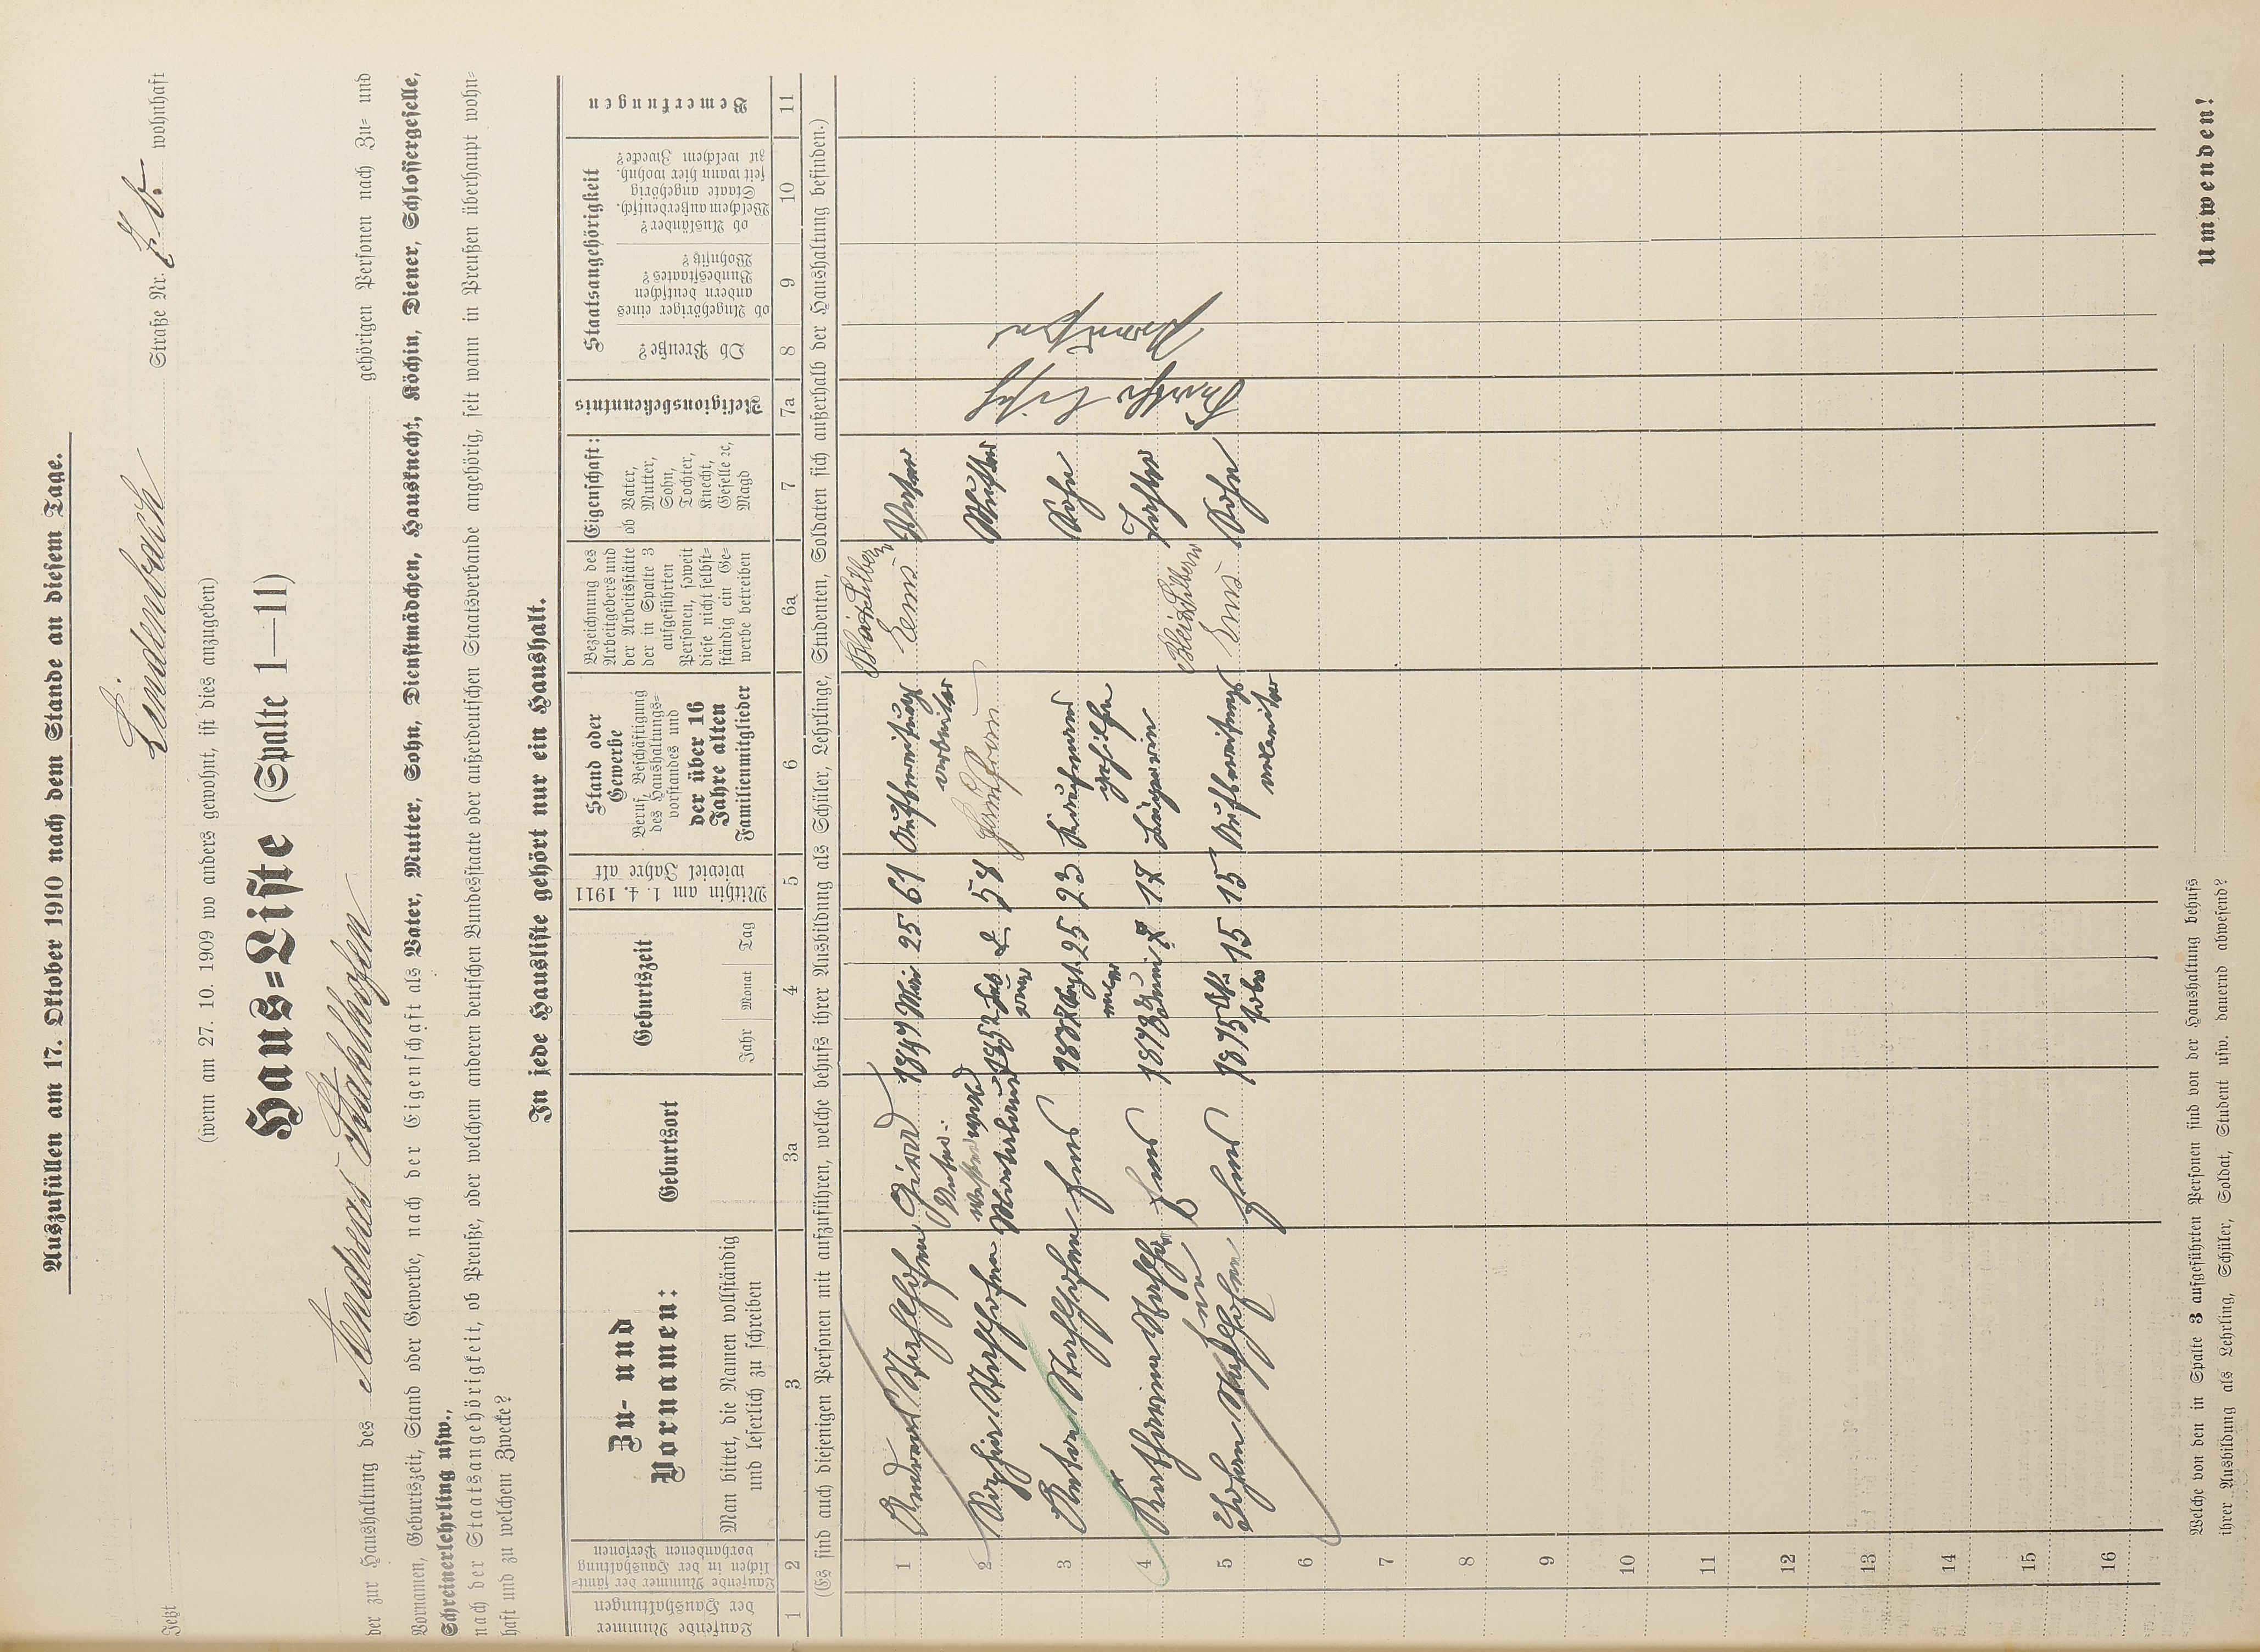 Auszufüllen am 17. Oktober 1910 nach dem Stande an diesem Tage.
Jetzt Lindenbach Straße Nr. wohnhaft
(wenn am 27. 10. 1909 wo anders gewohnt, ist dies anzugeben)
Haus=Liste (Spalte 1—11)
der zur Haushaltung des Andreas Stahlhofen gehörigen Personen nach Zu= und
Vornamen, Geburtszeit, Stand oder Gewerbe, nach der Eigenschaft als Vater, Mutter, Sohn, Dienstmädchen, Hausknecht, Köchin, Diener, Schlossergeselle,
Schreinerlehrling usw.,
nach der Staatsangehörigkeit, ob Preuße, oder welchem anderen deutschen Bundesstaate oder außerdeutschen Staatsverbande angehörig, seit wann in Preußen überhaupt wohn=
haft und zu welchem Zwecke?
In jede Hausliste gehört nur ein Haushalt.
Laufende Nummer
der Haushaltungen
Laufende Nummer der sämt=
lichen in der Haushaltung
vorhandenen Personen
Zu- und
Vornamen:
Man bittet, die Namen vollständig
und leserlich zu schreiben
Geburtsort
Geburtszeit
Jahr Monat Tag
Mithin am 1. 4. 1911
wieviel Jahre alt
Stand oder
Gewerbe
Beruf, Beschäftigung
des Haushaltungs=
vorstandes und
der über 16
Jahre alten
Familienmitglieder
Bezeichnung des
Arbeitgebers und
der Arbeitsstätte
der in Spalte 3
aufgeführten
Personen, soweit
diese nicht selbst=
ständig ein Ge=
werbe betreiben
Eigenschaft:
ob Vater,
Mutter,
Sohn,
Tochter,
Knecht,
Geselle ꝛc,
Magd
Religionsbekenntnis
Staatsangehörigkeit
Ob Preuße?
ob Angehöriger eines
andern deutschen
Bundesstaates?
Wohnsitz?
ob Ausländer?
Welchem außerdeutsch.
Staate angehörig
seit wann hier wohnh.
zu welchem Zwecke?
Bemerkungen
1 2 3 3a 4 5 6 6a 7 7a 8 9 10 11
(Es sind auch diejenigen Personen mit aufzuführen, welche behufs ihrer Ausbildung als Schüler, Lehrlinge, Studenten, Soldaten sich außerhalb der Haushaltung befinden.)
1 Andreas Stahlhofen 1849 Mai 25 61 Aufbereitungs Ems Vater
arbeiter
2 Sophie Stahlhofen 1852 58 Hausfrau Mutter
3 Anton Stahlhofen Ems 25 23 Sohn
4 Katharina Stahlho Ems Juni 17 Tochter
fen
5 Johann Stahlhofen Ems 15 15 Aufbereitungs Ems Sohn
arbeiter
Preußen
6
7
8
9
10
11
12
13
14
15
16
Welche von den in Spalte 3 aufgeführten Personen sind von der Haushaltung behufs
ihrer Ausbildung als Lehrling, Schüler, Soldat, Student usw. dauernd abwesend?
Umwenden!